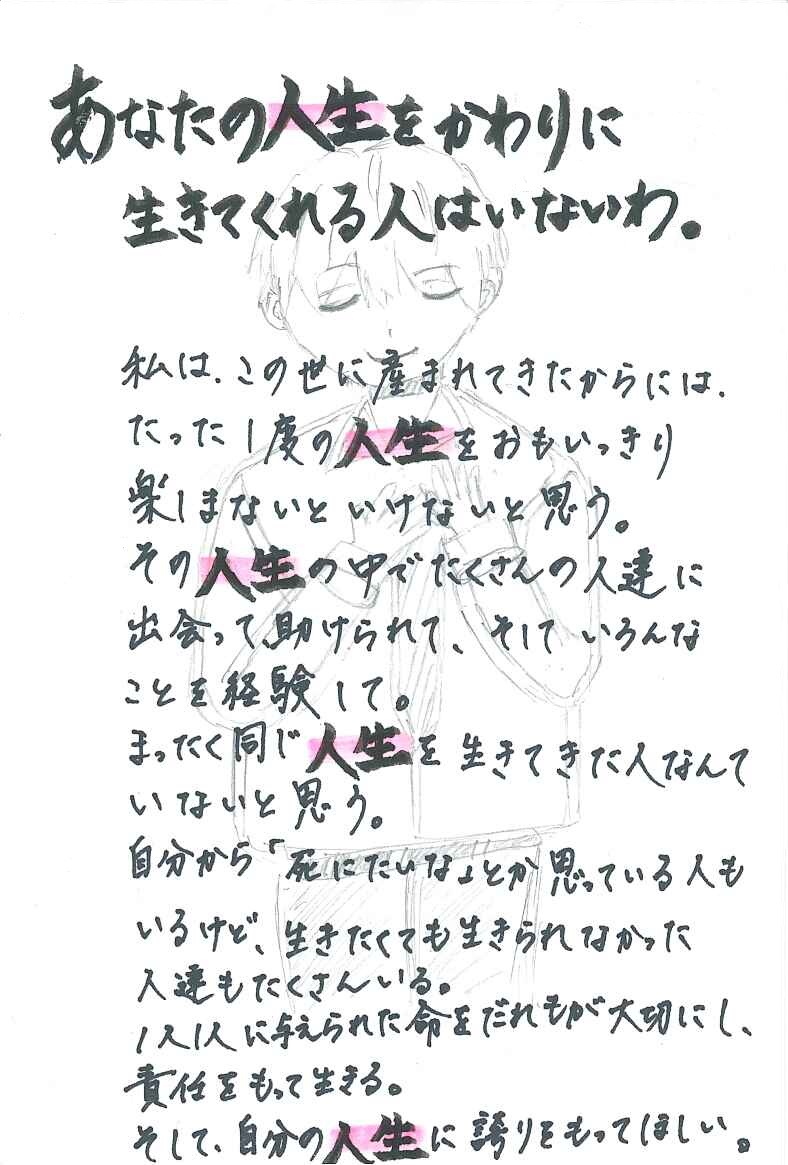 あなたの人生をかわりに
生きてくれる人はいないわ。
私は、この世に産まれてきたからには、
たった1度の人生をおもいっきり
楽しまないといけないと思う。
その人生の中でたくさんの人達に
出会って、助けられて、そしていろんな
ことを経験して。
まったく同じ人生を生きてきた人なんて
いないと思う。
自分から「死にたいな」とか思っている人も
いるけど、生きたくても生きられなかった
人達もたくさんいる。
1人1人に与えられた命をだれもが大切にし、
責任をもって生きる。
そして、自分の人生に誇りをもってほしい。